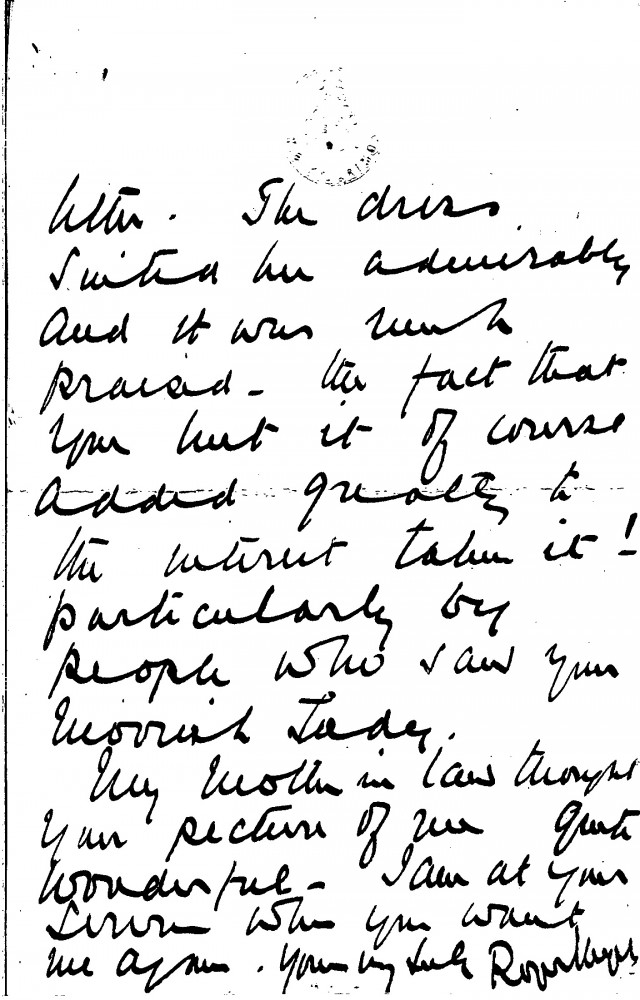 letter. The dress
suited her admirably
And it was much
praised - the fact that
you lent it of course
Added greatly to
the interest taken it!
particularly by
people who saw your
Moorish Lady.
My Mother in law thought
your picture of me quite
wonderful - I am at your
service when you want
me again. Yours very